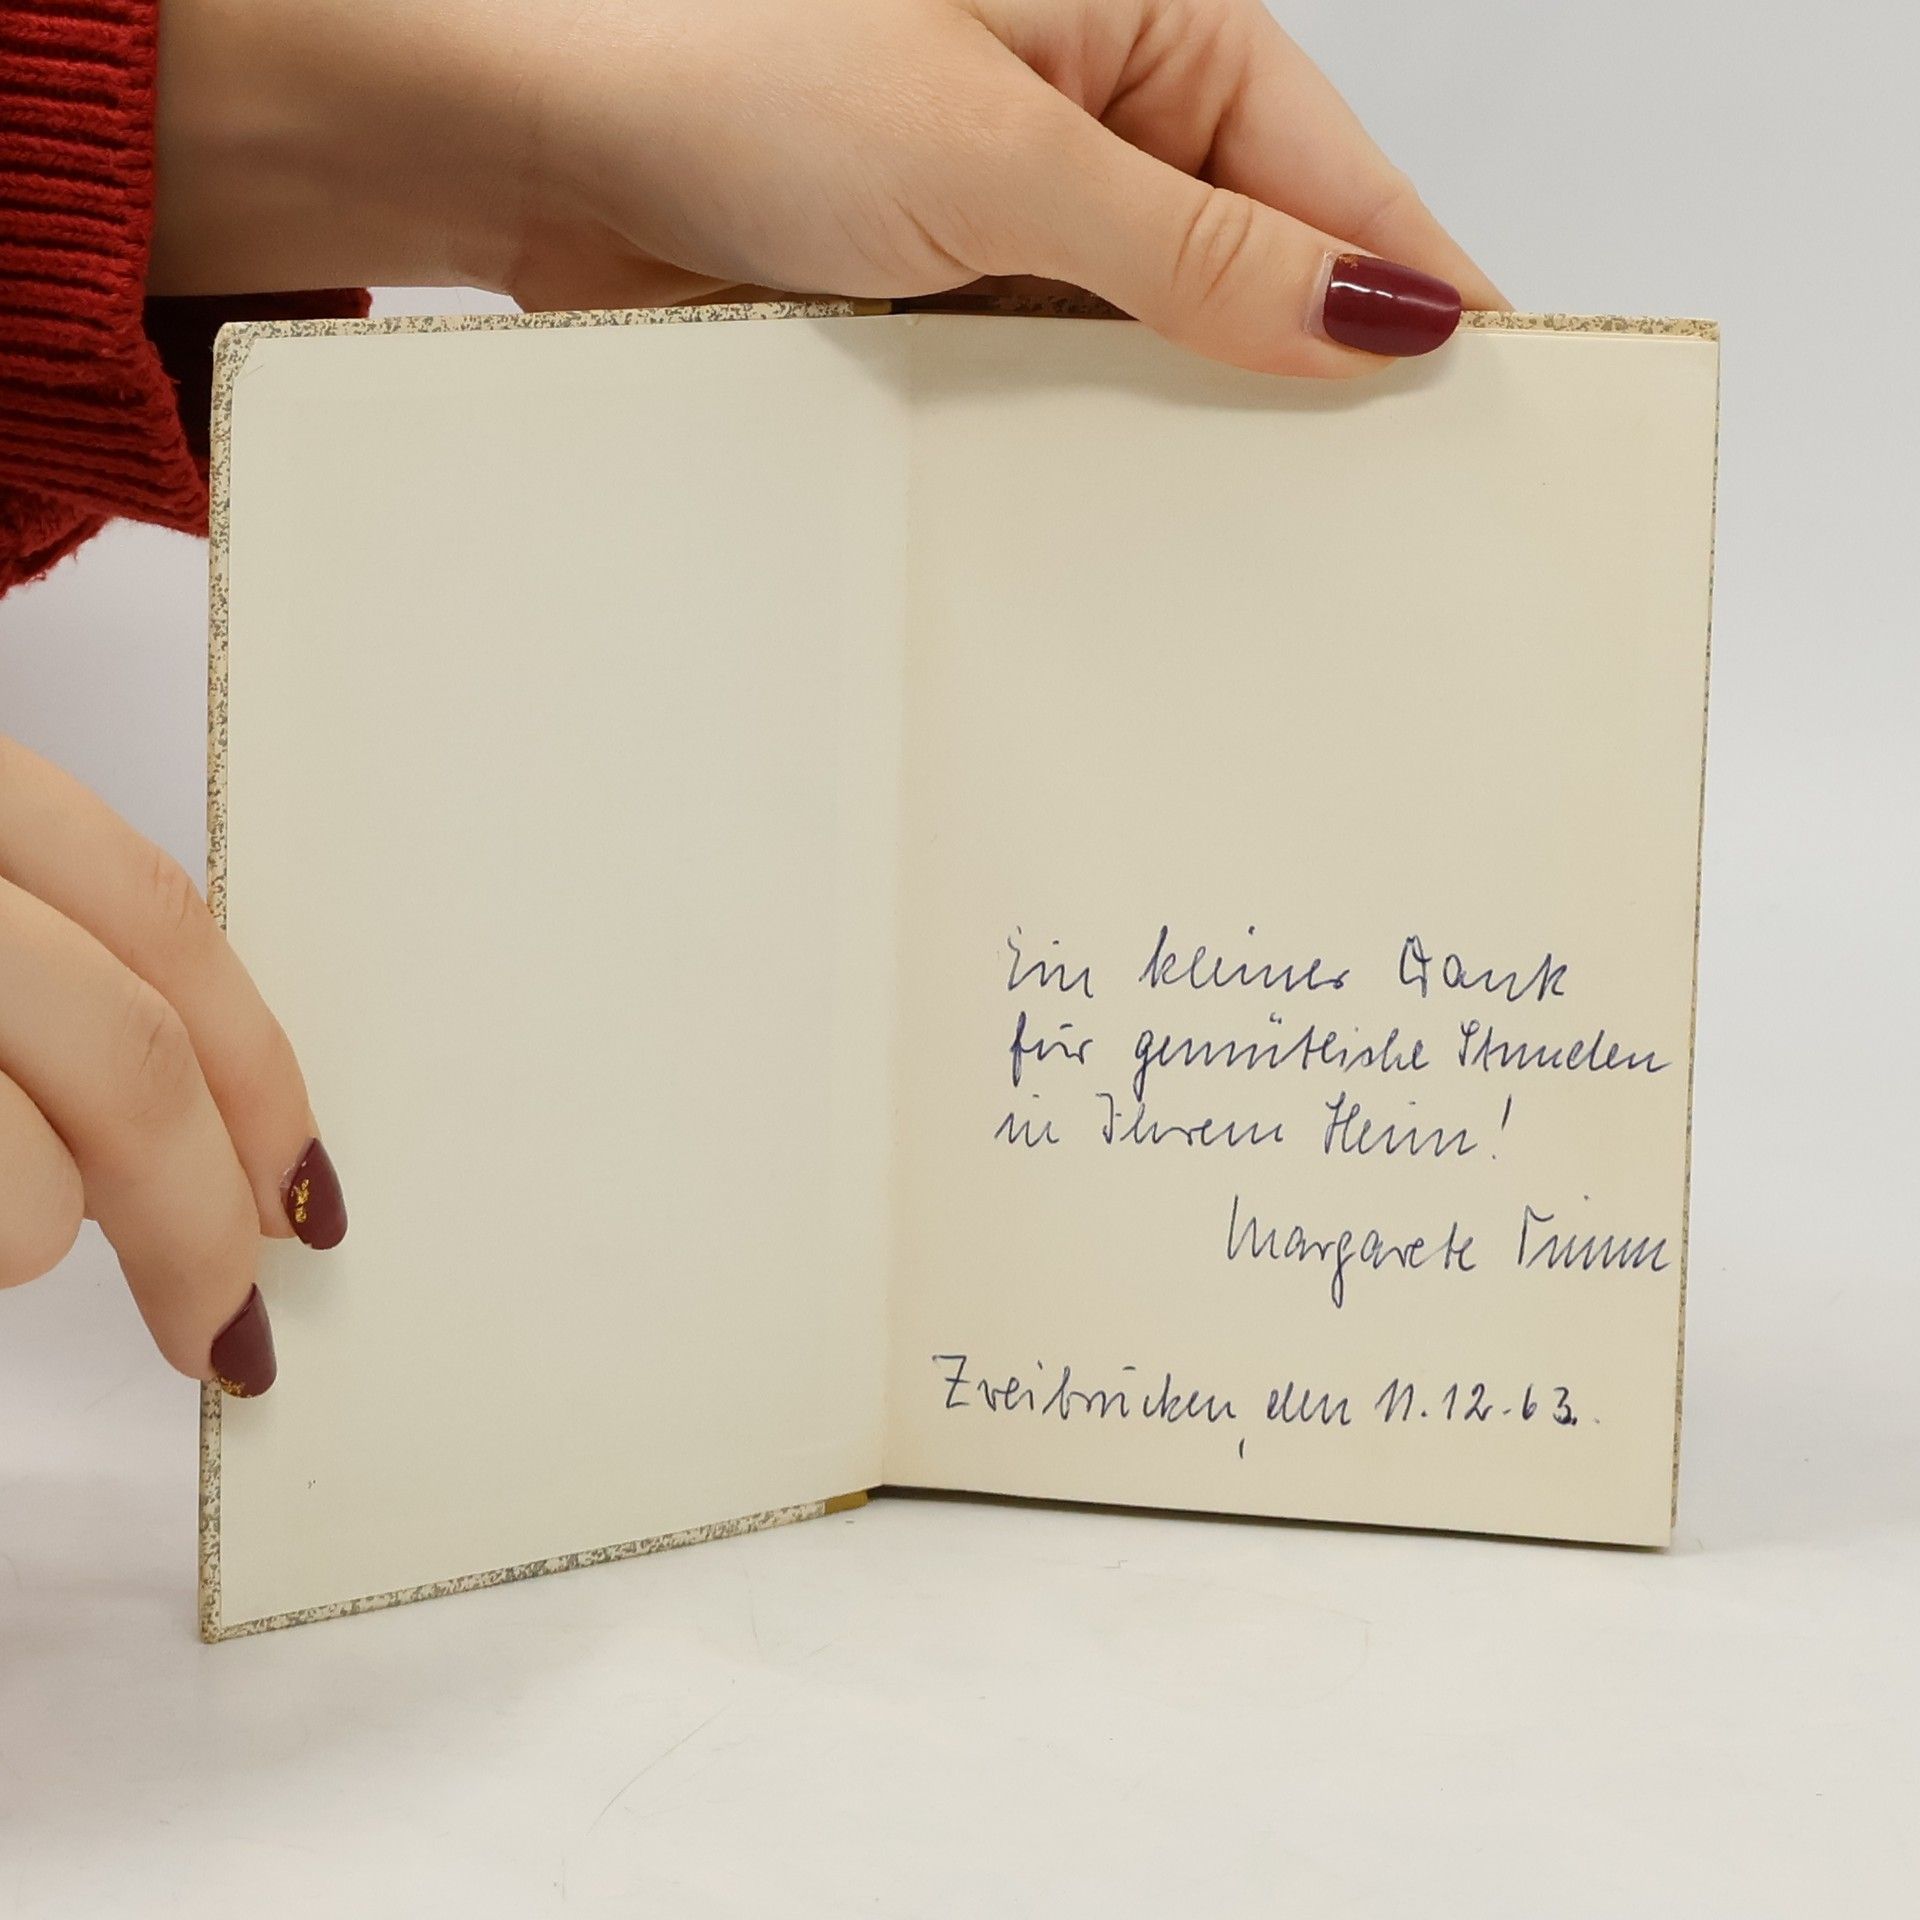 Ein kleiner Dank
für gemütliche Stunden
in Ihrem Heim!
Margarete
Zweibrücken, den 11.12.63.